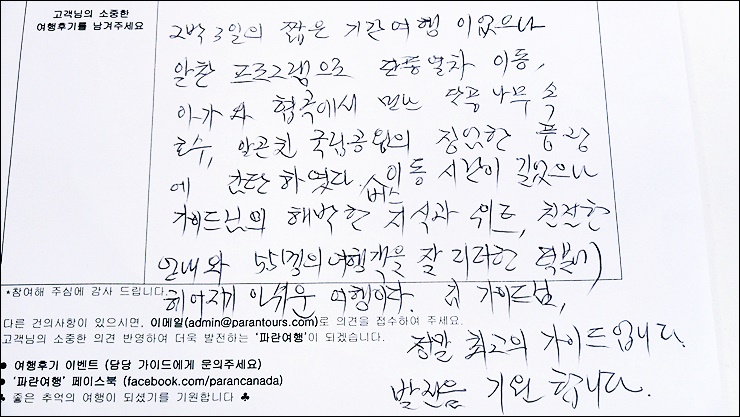 고객님의 소중한
여행후기를 남겨주세요
2박 3일의 짧은 기간여행 이었으나
알찬 프로그램으로 단풍열차 이동,
아가와 협곡에서 만난 단풍나무 숲
호수, 알곤퀸 국립공원의 장엄한 풍광
에 감탄하였다. 버스 이동 시간이 길었으나
가이드님의 해박한 지식과 위트, 친절한
안내와 55명의 여행객을 잘 리더한 덕분에
*참여해 주심에 감사 드립니다.
헤어지기 아쉬운 여행이다. 가이드님,
다른 건의사항이 있으시면, 이메일(admin@parantours.com)로 의견을 접수하여 주세요.
고객님의 소중한 의견 반영하여 더욱 발전하는 '파란여행'이 되겠습니다.
정말 최고의 가이드입니다.
● 여행후기 이벤트 (담당 가이드에게 문의주세요)
● '파란여행' 페이스북 (facebook.com/parancanada)
발전을 기원합니다.
♣ 좋은 추억의 여행이 되셨기를 기원합니다 ♣